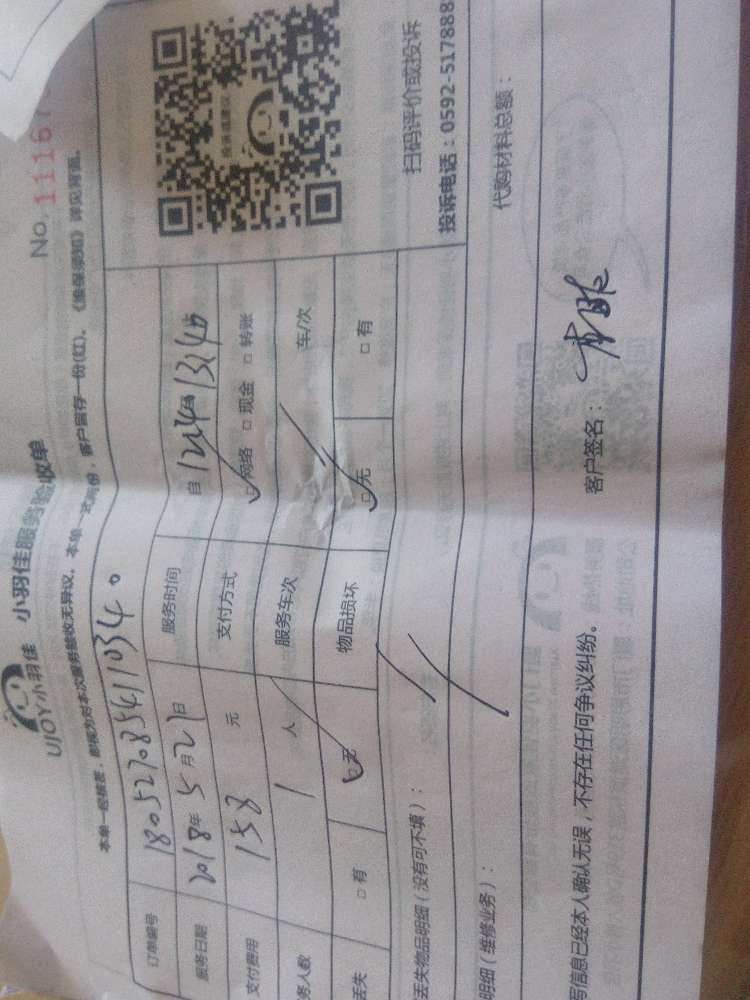 UJOY小羽佳 小羽佳服务验收单
No. 11167
本单一经核签，即视为对本次服务验收无异议。本单一式两份，客户留存一份(红)。《维保须知》详见背面。
订单编号 180527085411034
服务日期 2018年5月27日 服务时间 自
支付费用 158 元 支付方式 网络 □ 现金 □ 转账
务人数 1 人 服务车次 车/次
丢失 □ 有 □ 无 物品损坏 □ 无 □ 有
扫码评价或投诉
投诉电话：0592-517888
丢失物品明细（没有可不填）：
明细（维修业务）： 代购材料总额：
写信息已经本人确认无误，不存在任何争议纠纷。 客户签名：